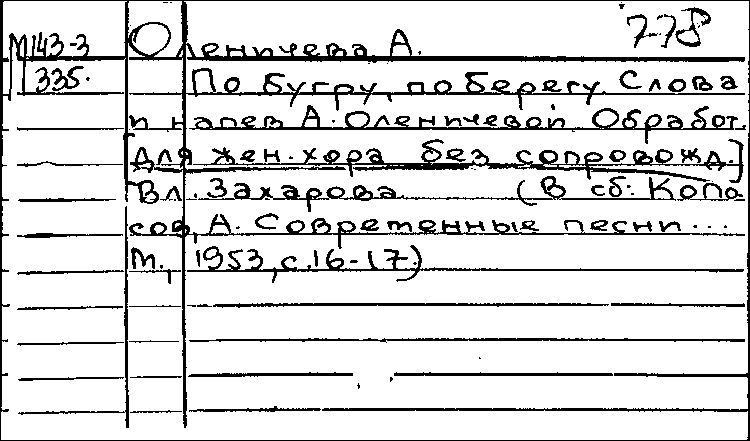 778
М143-3 Оленичева А.
335. По бугру, по берегу. Слова
и напев А. Оленичевой. Обработ.
[для жен. хора без сопровожд.]
Вл. Захарова (В сб: Копо
сов, А. Современные песни...
М., 1953, с. 16-17)